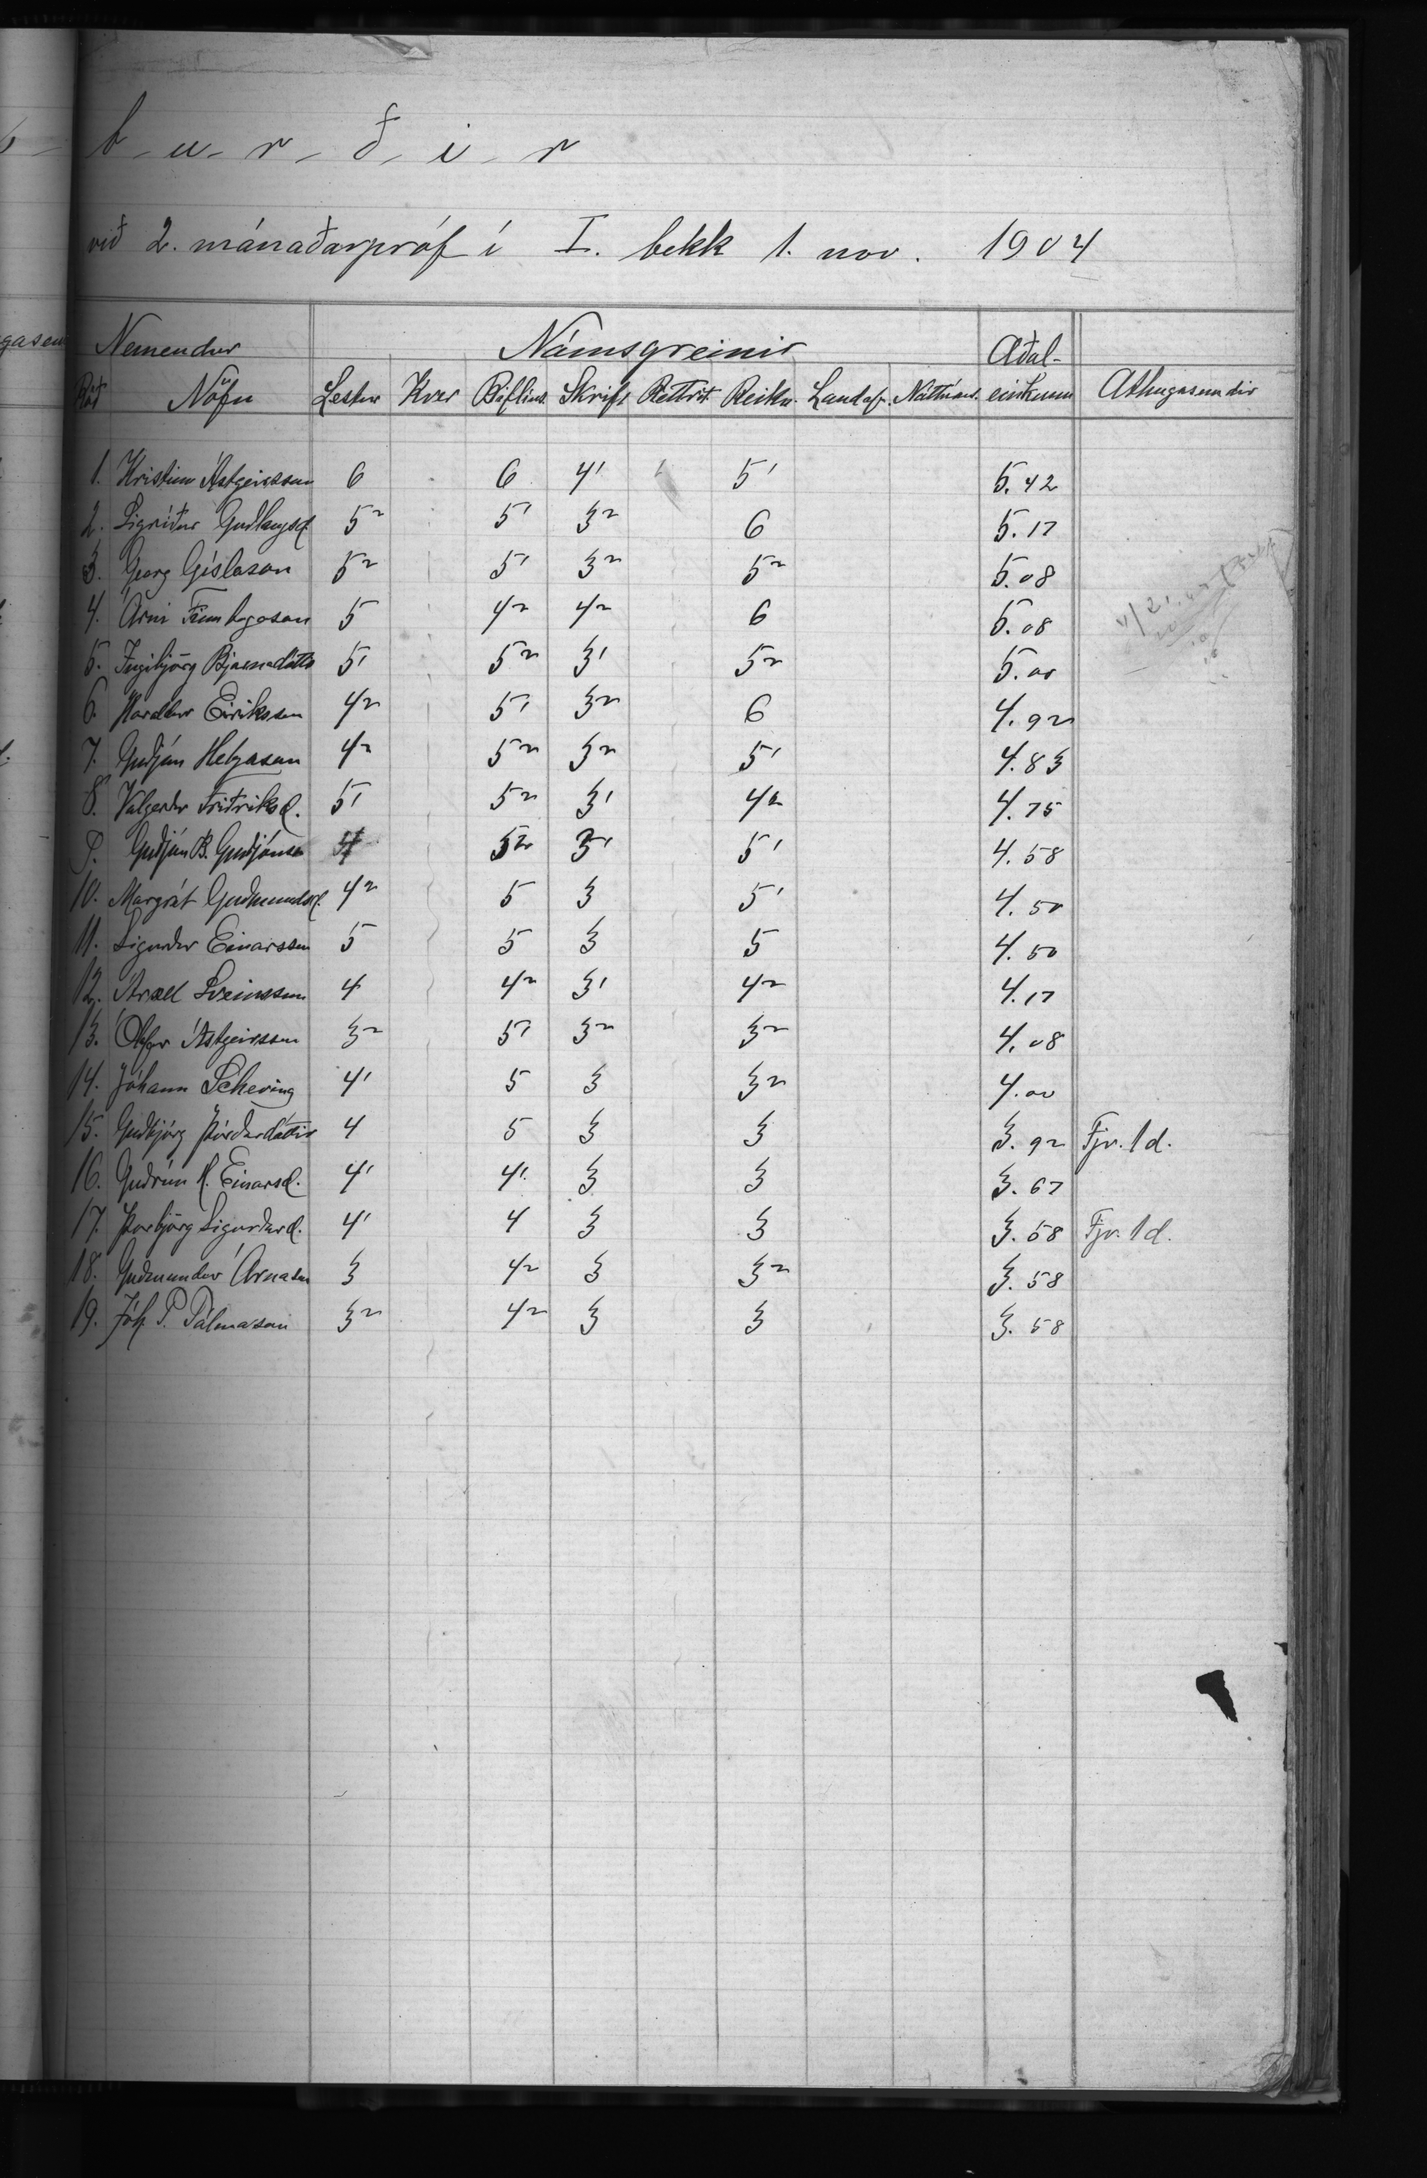 b - u - r - ð - i - r
við 2. mánaðarpróf í I. bekk 1. nov. 1904
Nemendur Námsgreinir Aðal-
Röð Nöfn Lestur Kver Biflius. Skrift Rettrit Reikn. Landafr. Náttúrus. einkunn Athugasemdir
1. Kristinn Ástgeirsson 6 6 4' 5' 5.42
2. Sigríður Guðlaugsd. 5² 5' 3² 6 5.17
3. Georg Gíslason 5² 5' 3² 5² 5.08
4. Árni Finnbogason 5 4² 4² 6 5.08
5. Ingibjörg Bjarnadóttir 5' 5² 3' 5² 5.00
6. Haraldur Eiríksson 4² 5' 3² 6 4.92
7. Guðjón Helgason 4² 5² 3² 5' 4.83
8. Valgerður Friðriksd. 5' 5² 3' 4² 4.75
9. Guðjón B. Guðjónss 4 5² 3' 5' 4.58
10. Margrét Guðmundsd. 4² 5 3 5' 4.50
11. Sigurður Einarsson 5 5 3 5 4.50
12. Ársæll Sveinsson 4 4² 3' 4² 4.17
13. Ólafur Ástgeirsson 3² 5' 3² 3² 4.08
14. Jóhann Scheving 4' 5 3 3² 4.00
15. Guðbjörg Þórðardóttir 4 5 3 3 3.92 Fjv. 1 d.
16. Guðrún H. Einarsd. 4' 4' 3 3 3.67
17. Þorbjörg Sigurðard. 4' 4 3 3 3.58 Fjv. 1 d.
18. Guðmundur Árnason 3 4² 3 3² 3.58
19. Jóh. P. Pálmason 3² 4² 3 3 3.58